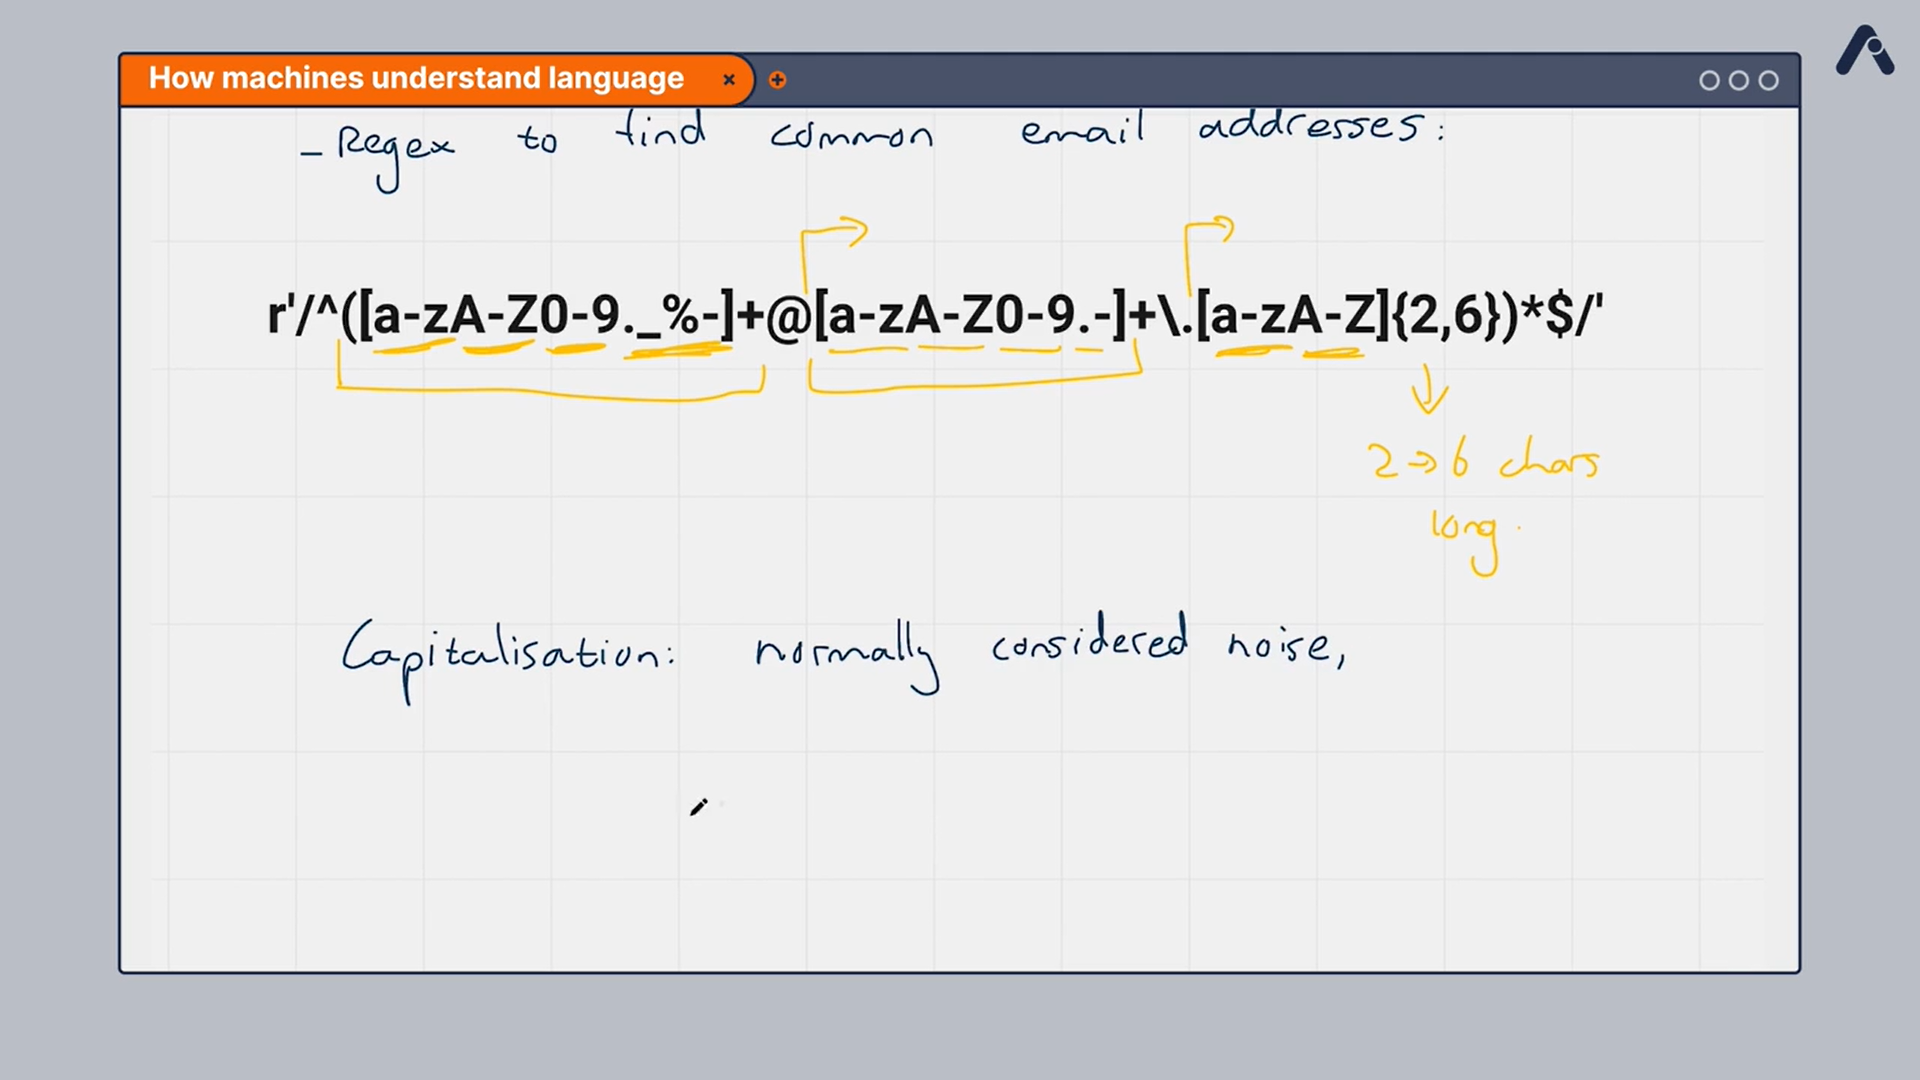 How machines understand language
– Regex to find common email addresses:
r'/^([a-zA-Z0-9._%-]+@[a-zA-Z0-9.-]+\.[a-zA-Z]{2,6})*$/'
2→6 chars
long.
Capitalisation: normally considered noise,